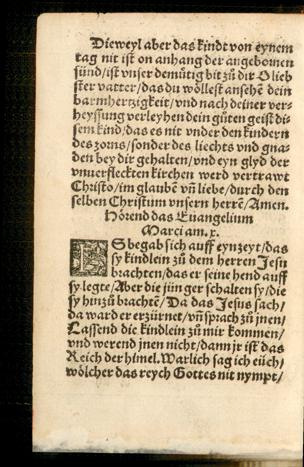 Dieweyl aber das kindt von eynem
tag nit ist on anhang der angebornen
sünd/ist vnser demütig bit zů dir O lieb
ster vatter/das du wöllest ansehē dein
barmhertzigkeit/vnd nach deiner ver-
heyssung verleyhen dein gůten geist di-
sem kind/das es nit vnder den kindern
des zorns/sonder des liechts vnd gna-
den bey dir gehalten/vnd eyn glyd der
vnuerfleckten kirchen werd vertrawt
Christo/im glaubē vñ liebe/durch den
selben Christum vnsern herrē/Amen.
Hörend das Euangelium
Marci am. x.
ES begab sich auff eyn zeyt/das
sy kindlein zů dem herren Jesu
brachten/das er seine hend auff
sy legte/Aber die jünger schalten sy/die
sy hinzů brachtē/Da das Jesus sach/
da ward er erzürnet/vñ sprach zů jnen/
Lassend die kindlein zů mir kommen/
vnd werend jnen nicht/dann jr ist das
Reich der himel. Warlich sag ich eüch/
wölcher das reych Gottes nit nympt/